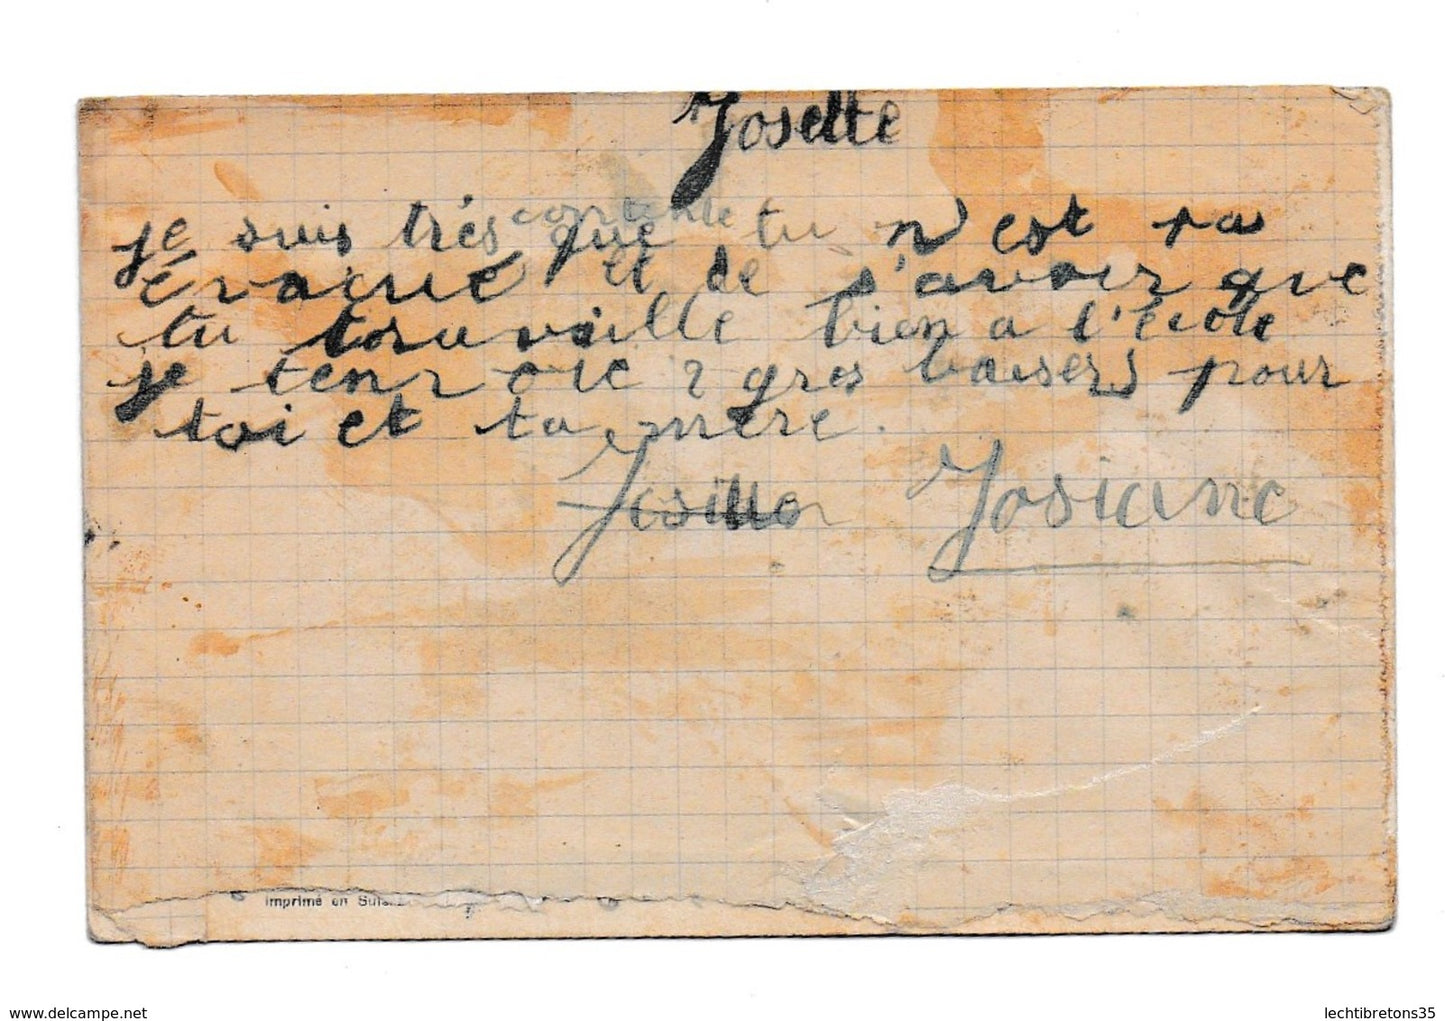 Josette
je suis très contente que tu n'est pas
évacué et de s'avoir que
tu travaille bien a l'école
je tenvoie 2 gros baisers pour
toi et ta mère.
Josiane
Imprimé en Suisse
www.delcampe.net
lechtibretons35